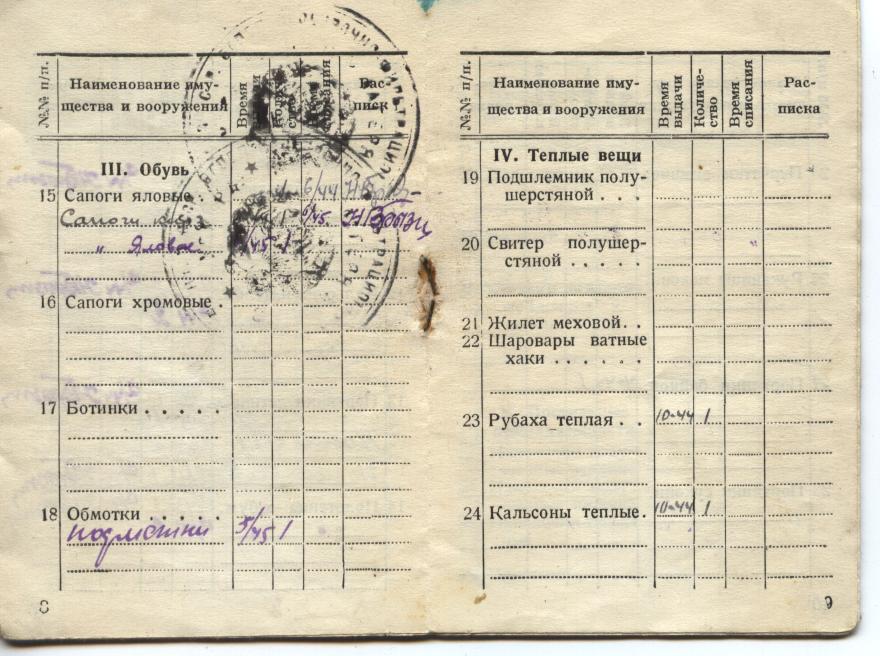 №№ п/п. Наименование имущества и вооружения Время выдачи Количество Время списания Расписка
III. Обувь
15 Сапоги яловые . . 6/44
Сапоги 1 6/45
" Яловые /45 1
16 Сапоги хромовые .
17 Ботинки . . . . .
18 Обмотки . . . . .
подметки 5/45 1
8
№№ п/п. Наименование имущества и вооружения Время выдачи Количество Время списания Расписка
IV. Теплые вещи
19 Подшлемник полу-
шерстяной . . .
20 Свитер полушер-
стяной . . . . .
21 Жилет меховой . .
22 Шаровары ватные
хаки . . . . . .
23 Рубаха теплая . . 10-44 1
24 Кальсоны теплые . 10-44 1
9